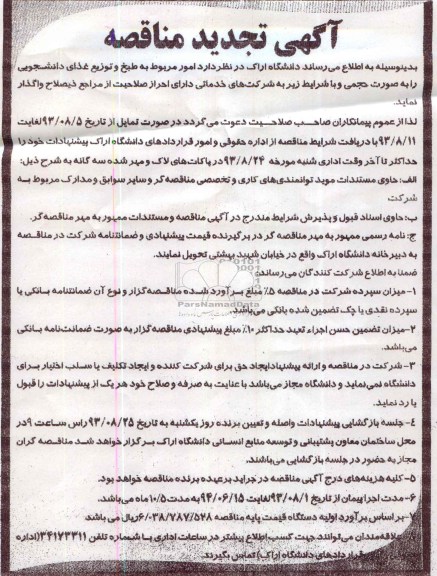 آگهی تجدید مناقصه
بدینوسیله به اطلاع می‌رساند دانشگاه اراک در نظر دارد امور مربوط به طبخ و توزیع غذای دانشجویی
را به صورت حجمی و با شرایط زیر به شرکت‌های خدماتی دارای احراز صلاحیت از مراجع ذیصلاح واگذار
نماید.
لذا از عموم پیمانکاران صاحب صلاحیت دعوت می‌گردد در صورت تمایل از تاریخ ۹۳/۰۸/۵ لغایت
۹۳/۸/۱۱ با دریافت شرایط مناقصه از اداره حقوقی و امور قراردادهای دانشگاه اراک پیشنهادات خود را
حداکثر تا آخر وقت اداری شنبه مورخه ۹۳/۸/۲۴ در پاکات‌های لاک و مهر شده سه گانه به شرح ذیل:
الف: حاوی مستندات موید توانمندی‌های کاری و تخصصی مناقصه‌گر و سایر سوابق و مدارک مربوط به
شرکت
ب: حاوی اسناد قبول و پذیرش شرایط مندرج در آگهی مناقصه و مستندات ممهور به مهر مناقصه گر.
ج: نامه رسمی ممهور به مهر مناقصه گر در برگیرنده قیمت پیشنهادی و ضمانتنامه شرکت در مناقصه
به دبیرخانه دانشگاه اراک واقع در خیابان شهید بهشتی تحویل نمایند.
ضمنا به اطلاع شرکت کنندگان می‌رساند:
۱- میزان سپرده شرکت در مناقصه ۵٪ مبلغ برآورد شده مناقصه‌گزار و نوع آن ضمانتنامه بانکی یا
سپرده نقدی یا چک تضمین شده بانکی می‌باشد.
۲- میزان تضمین حسن اجراء تعهد حداکثر ۱۰٪ مبلغ پیشنهادی مناقصه‌گزار به صورت ضمانت‌نامه بانکی
می‌باشد.
۳- شرکت در مناقصه و ارائه پیشنهاد ایجاد حق برای شرکت کننده و ایجاد تکلیف یا سلب اختیار برای
دانشگاه نمی‌نماید و دانشگاه مجاز می‌باشد با عنایت به صرفه و صلاح خود هر یک از پیشنهادات را قبول
یا رد نماید.
۴- جلسه بازگشایی پیشنهادات واصله و تعیین برنده روز یکشنبه به تاریخ ۹۳/۰۸/۲۵ راس ساعت ۹ در
محل ساختمان معاون پشتیبانی و توسعه منابع انسانی دانشگاه اراک برگزار خواهد شد مناقصه گران
مجاز به حضور در جلسه بازگشایی می‌باشند.
۵- کلیه هزینه‌های درج آگهی مناقصه در جراید برعهده برنده مناقصه خواهد بود.
۶- مدت اجرا پیمان از تاریخ ۹۳/۰۸/۱ لغایت ۹۴/۰۶/۱۵ به مدت ۱۰/۵ ماه می‌باشد.
۷- بر اساس برآورد اولیه دستگاه قیمت پایه مناقصه ۶/۰۳۸/۷۸۷/۵۲۸ ریال می باشد
علاقه‌مندان می‌توانند جهت کسب اطلاع بیشتر در ساعات اداری با شماره تلفن ۳۴۱۷۳۳۱۱ (اداره
قراردادهای دانشگاه اراک) تماس بگیرند.
ParsNamadData